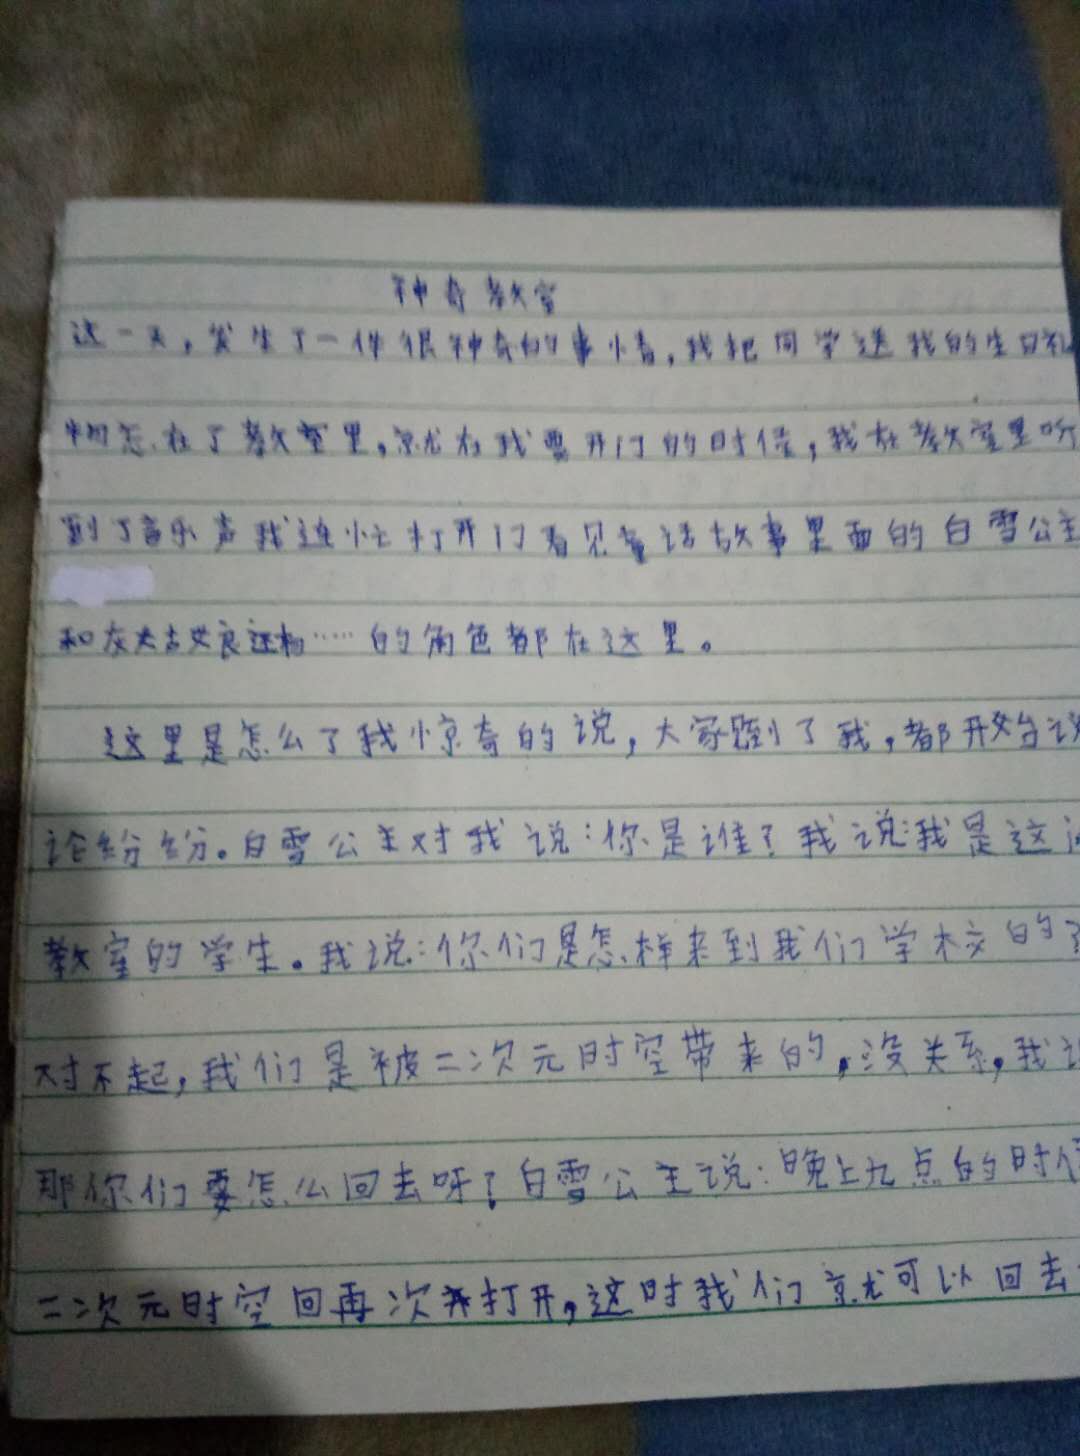 神奇教室
这一天,发生了一件很神奇的事情,我把同学送我的生日礼
物忘在了教室里,就在我要开门的时候,我在教室里听
到了音乐声我连忙打开门看见童话故事里面的白雪公主
和灰姑娘还有……的角色都在这里。
这里是怎么了我惊奇的说,大家到了我,都开始议
论纷纷。白雪公主对我说:你是谁?我说:我是这间
教室的学生。我说:你们是怎样来到我们学校的
对不起,我们是被二次元时空带来的,没关系,我说
那你们要怎么回去呀?白雪公主说:晚上九点的时候
二次元时空回再次打开,这时我们就可以回去